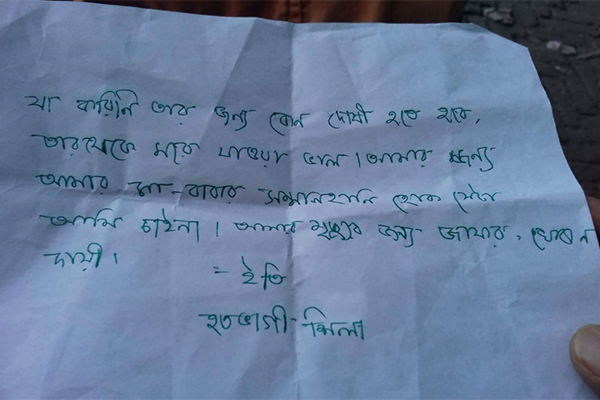 যা করিনি তার জন্য কেন দোষী হতে হবে,
তারথেকে মরে যাওয়া ভাল। আমার জন্য
আমার মা-বাবার সম্মানহানি হোক সেটা
আমি চাইনা। আমার মৃত্যুর জন্য
দায়ী।
= ইতি
হতভাগী-শিলা